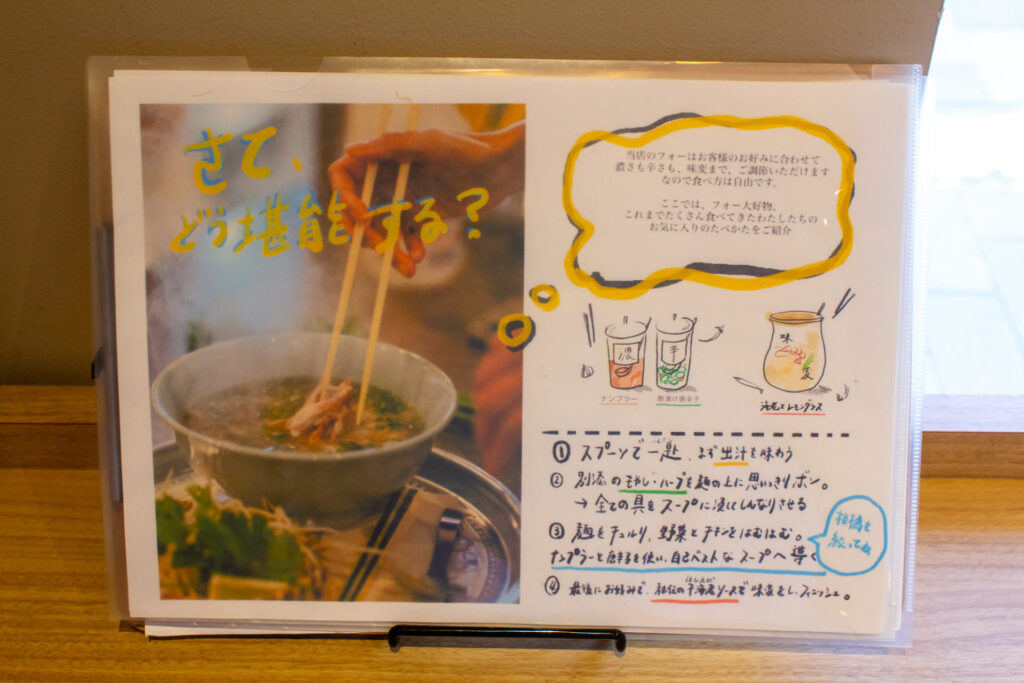 さて、
どう堪能する?
当店のフォーはお客様のお好みに合わせて
濃さも辛さも、味変まで、ご調節いただけます
なので食べ方は自由です。
ここでは、フォー大好物、
これまでたくさん食べてきたわたしたちの
お気に入りのたべかたをご紹介
濃
辛
味
変
ナンプラー
酢漬け唐辛子
海老とレモングラス
① スプーンで一匙、まず出汁を味わう
② 別添のもやし・ハーブを麺の上に思いっきりポン。
→ 全ての具をスープに浸してしんなりさせる
③ 麺をチュルリ、野菜とチキンをはむはむ。
ナンプラーと唐辛子を使い、自己ベストなスープへ導く
柑橘も
絞ってね
④ 最後にお好みで、秘伝の干海老ソースで味変をし、フィニッシュ。